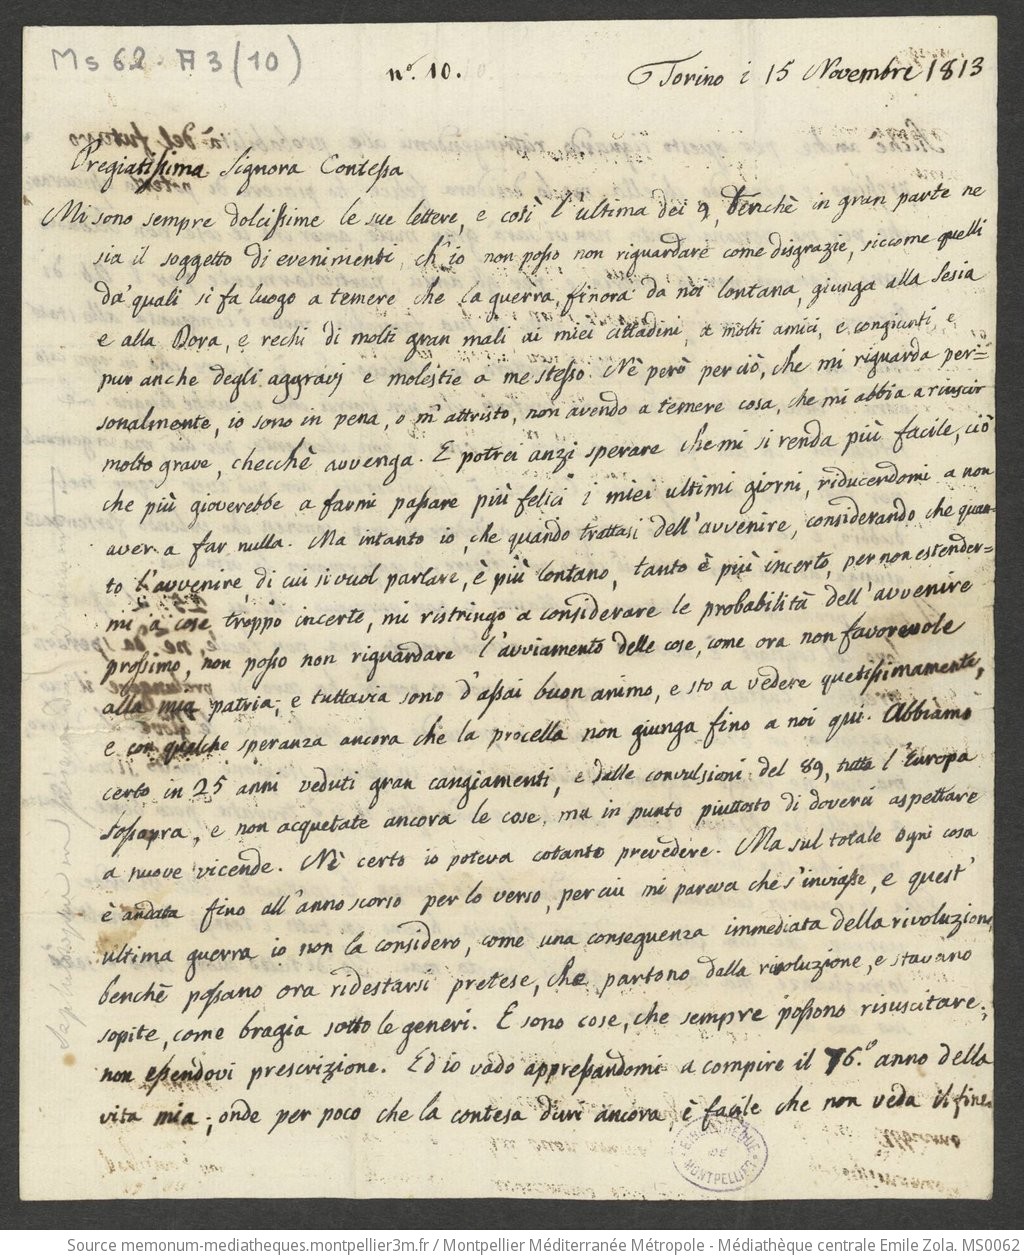 Ms 62. A3 (10)
n.º 10.
Torino i 15 Novembre 1813
Pregiatissima Signora Contessa
Mi sono sempre dolcissime le sue lettere, e così l'ultima dei 9, benchè in gran parte ne
sia il soggetto di evenimenti, ch'io non posso non riguardare come disgrazie, siccome quelli
da' quali si fa luogo a temere che la guerra, finora da noi lontana, giunga alla Sesia
e alla Dora, e rechi di molti gran mali ai miei cittadini, a molti amici, e congiunti, e
pur anche degli aggravj e molestie a me stesso. Nè però per ciò, che mi riguarda per=
sonalmente, io sono in pena, o m'attristo, non avendo a temere cosa, che mi abbia a riuscir
molto grave, checchè avvenga. E potrei anzi sperare che mi si renda più facile, ciò
che più gioverebbe a farmi passare più felici i miei ultimi giorni, riducendomi a non
aver a far nulla. Ma intanto io, che quando trattasi dell'avvenire, considerando che quan-
to l'avvenire, di cui si vuol parlare, è più lontano, tanto è più incerto, per non estender=
mi a cose troppo incerte, mi ristringo a considerare le probabilità dell'avvenire
prossimo, non posso non riguardare l'avviamento delle cose, come ora non favorevole
alla mia patria; e tuttavia sono d'assai buon animo, e sto a vedere quetissimamente,
e con qualche speranza ancora che la procella non giunga fino a noi qui. Abbiamo
certo in 25 anni veduti gran cangiamenti, e dalle convulsioni del 89, tutta l'Europa
sossopra, e non acquetate ancora le cose, ma in punto piuttosto di doversi aspettare
a nuove vicende. Nè certo io poteva cotanto prevedere. Ma sul totale ogni cosa
è andata fino all'anno scorso per lo verso, per cui mi pareva che s'inviasse, e quest'
ultima guerra io non la considero, come una conseguenza immediata della rivoluzione,
benchè possano ora ridestarsi pretese, che partono dalla rivoluzione, e stavano
sopite, come bragia sotto le ceneri. E sono cose, che sempre possono risuscitare;
non essendovi prescrizione. Ed io vado appressandomi a compire il 76.º anno della
vita mia; onde per poco che la contesa duri ancora, è facile che non veda il fine.
BIBLIOTHEQUE DE MONTPELLIER
Source memonum-mediatheques.montpellier3m.fr / Montpellier Méditerranée Métropole - Médiathèque centrale Emile Zola. MS0062